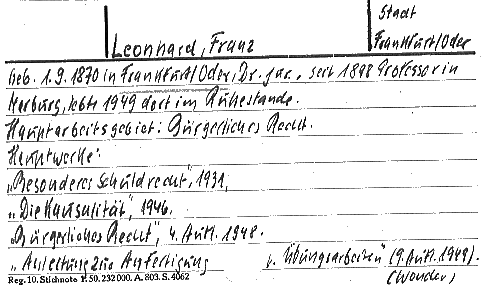 Stadt
Leonhard, Franz
Frankfurt/Oder
Geb. 1.9.1870 in Frankfurt/Oder, Dr. jur., seit 1898 Professor in
Marburg, lebte 1949 dort im Ruhestande.
Hauptarbeitsgebiet: Bürgerliches Recht.
Hauptwerke:
„Besonderes Schuldrecht“, 1931,
„Die Kausalität“, 1946.
„Bürgerliches Recht“, 4. Aufl. 1948.
„Anleitung zur Anfertigung v. Übungsarbeiten“ (9. Aufl. 1949).
(Wonder)
Reg. 10. Stichnote F. 50. 232 000. A. 803. S. 4062